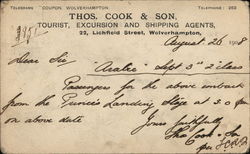 TELEGRAMS "COUPON, WOLVERHAMPTON. TELEPHONE: 263
THOS. COOK & SON,
TOURIST, EXCURSION AND SHIPPING AGENTS,
22, Lichfield Street, Wolverhampton,
August 26 1908
Dear Sir
"Arabic" Sept 3rd 2 class
Passengers for the above embark
from the Princes Landing Stage at 3.0 pm
on above date
Yours faithfully
Thos Cook & Son
per